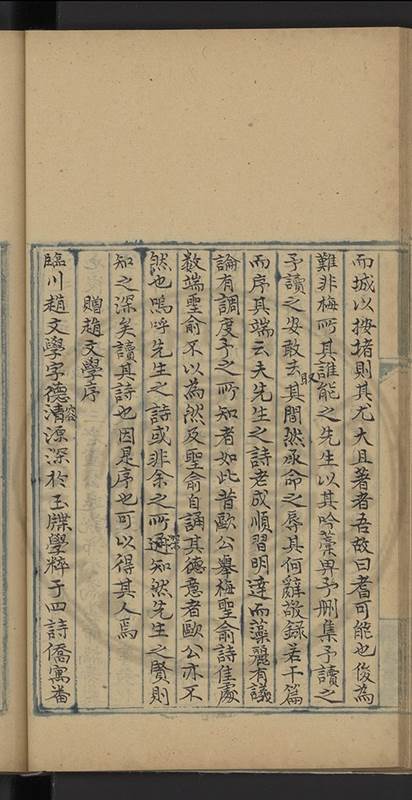 而城以按堵則其尤大且著者吾故曰耆可能也俊為
難非梅所其誰能之先生以其吟藁畀予刪集予讀之
予讀之安敢去取其間然承命之辱其何辭敬錄若干篇
而序其端云夫先生之詩老成順習明達而藻麗有議
論有調度予之所知者如此昔歐公舉梅聖俞詩佳處
數端聖俞不以為然及聖俞自誦其得意者歐公亦不
然也嗚呼先生之詩或非余之所深知然先生之賢則
知之深矣讀其詩也因是序也可以得其人焉
贈趙文學序
臨川趙文學字德清源深於玉牒學粹于四詩僑寓番